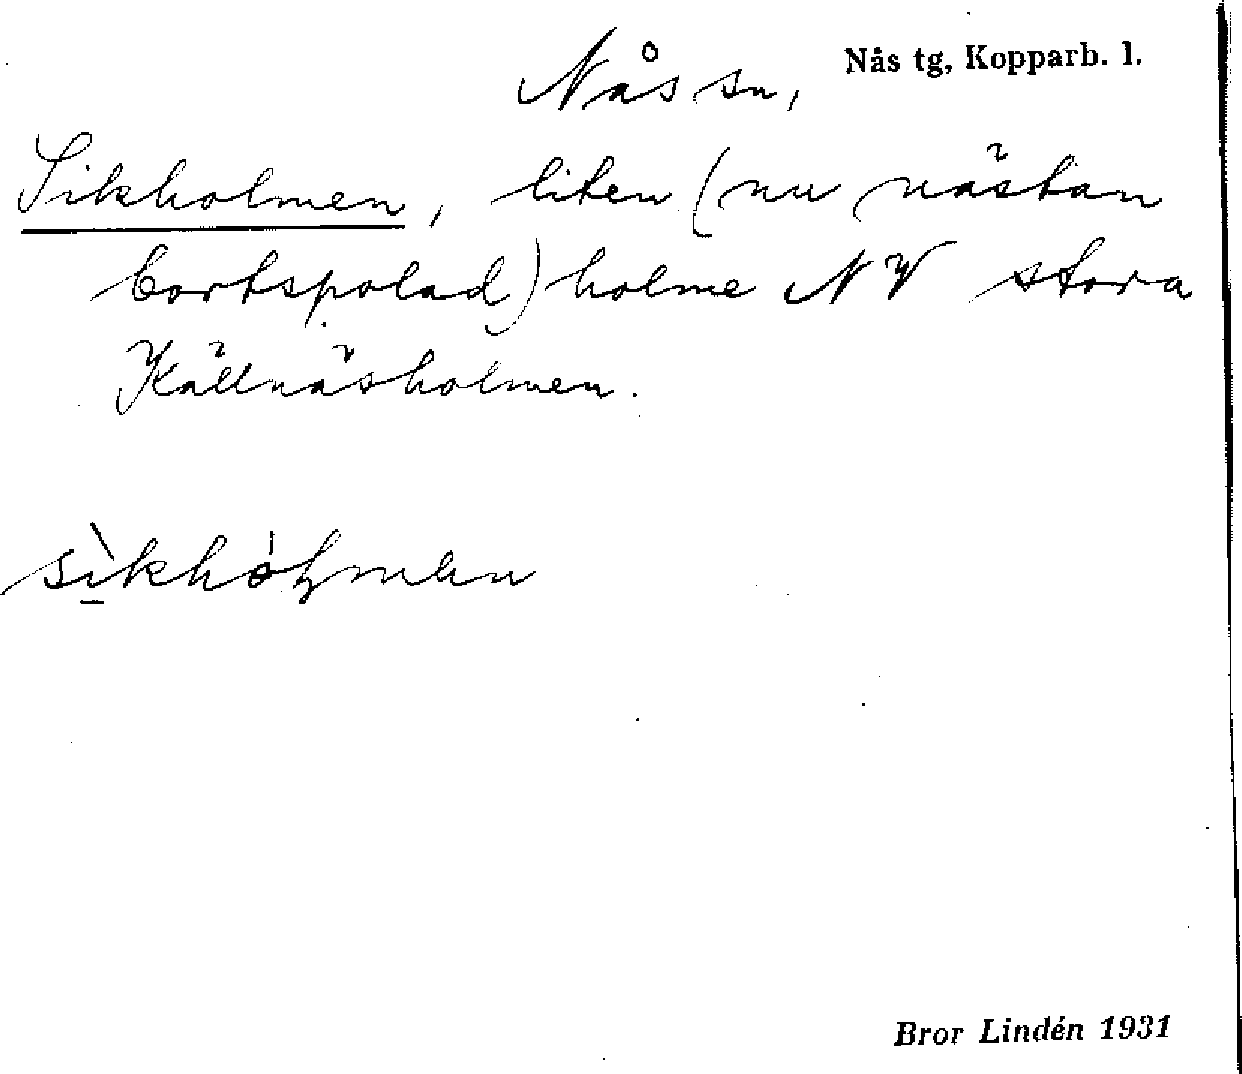 Nås sn, Nås tg, Kopparb. l.
Sikholmen, liten (nu nästan
bortspolad) holme NV stora
Källnäsholmen.
Bror Lindén 1931